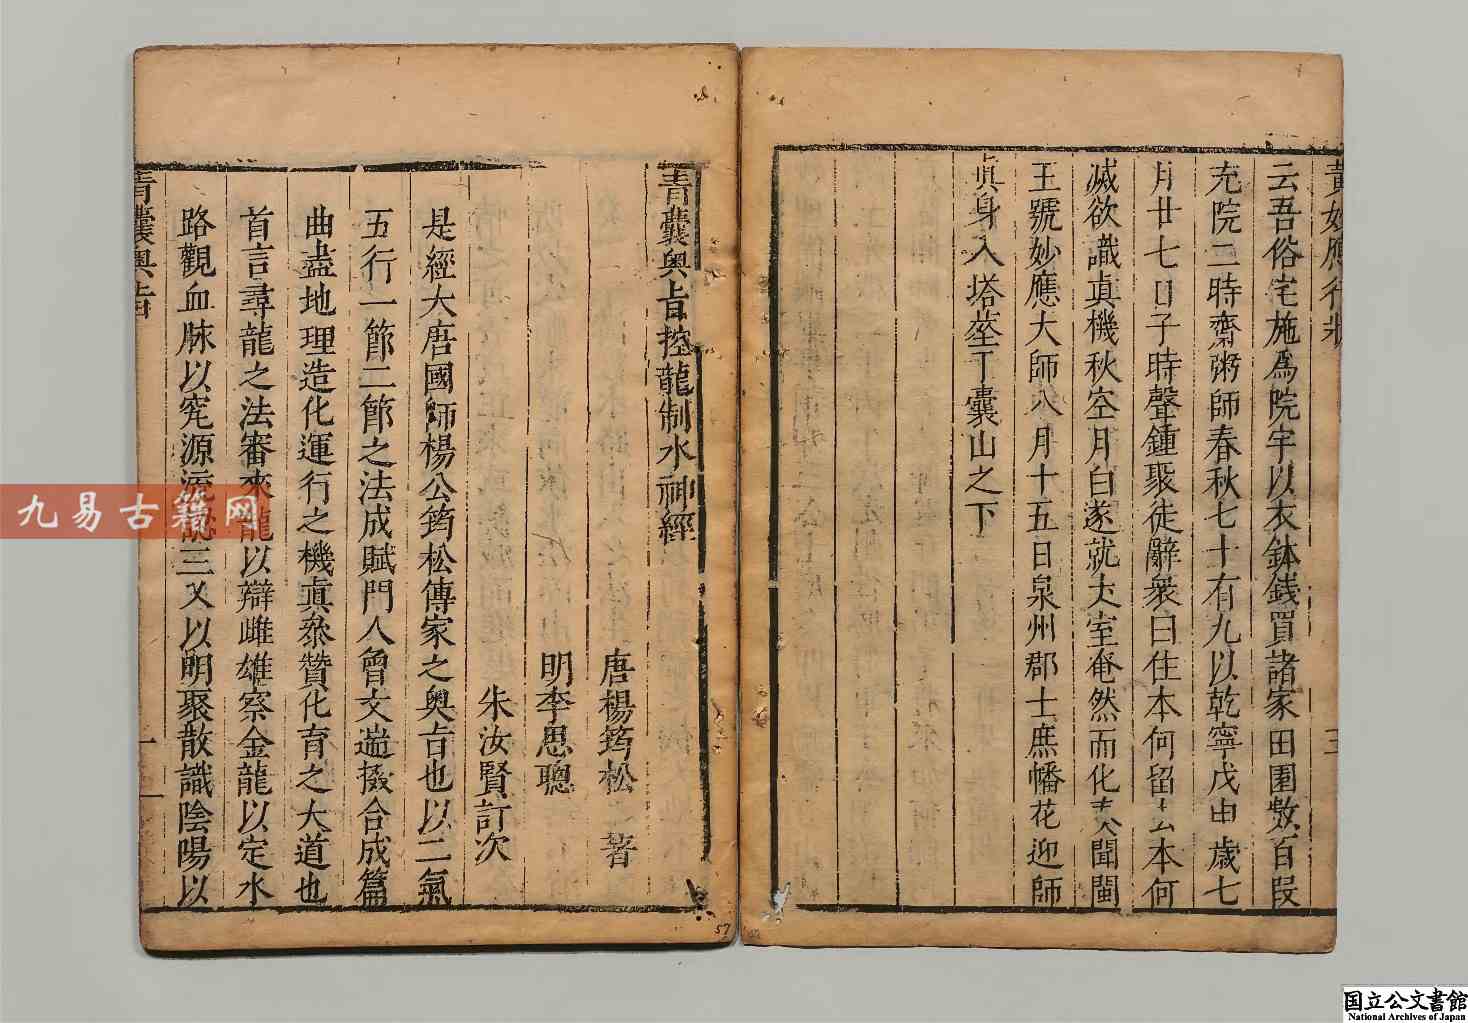 黃妙應行狀
三
云吾俗宅施爲院宇以衣鉢錢買諸家田園數百段
充院二時齋粥師春秋七十有九以乾寧戊申歲七
月廿七日子時聲鍾聚徒辭衆曰住本何留去本何
滅欲識真機秋空月白遂就丈室奄然而化表聞閩
王號妙應大師八月十五日泉州郡士庶幡花迎師
真身入塔塟于囊山之下
青囊奧旨控龍制水神經
唐楊筠松 著
明李思聰
朱汝賢訂次
是經大唐國師楊公筠松傳家之奧旨也以二氣
五行一節二節之法成賦門人曾文遄掇合成篇
曲盡地理造化運行之機真叅贊化育之大道也
首言尋龍之法審來龍以辯雌雄察金龍以定水
路觀血脉以究源流認三叉以明聚散識陰陽以
青囊奧旨
一
九易古籍网
57
国立公文書館
National Archives of Japan